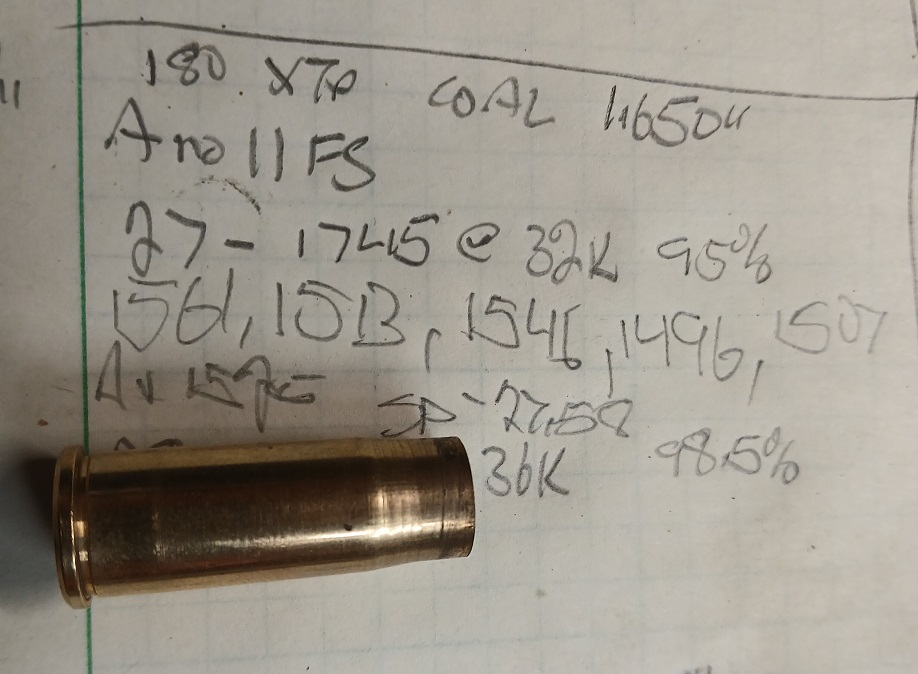 180 XTP COAL 1.650"
A no 11 FS
27 - 1745 @ 32K 95%
1561, 1513, 1546, 1496, 1507
Av 1525 SD - 27.58
36K 98.5%